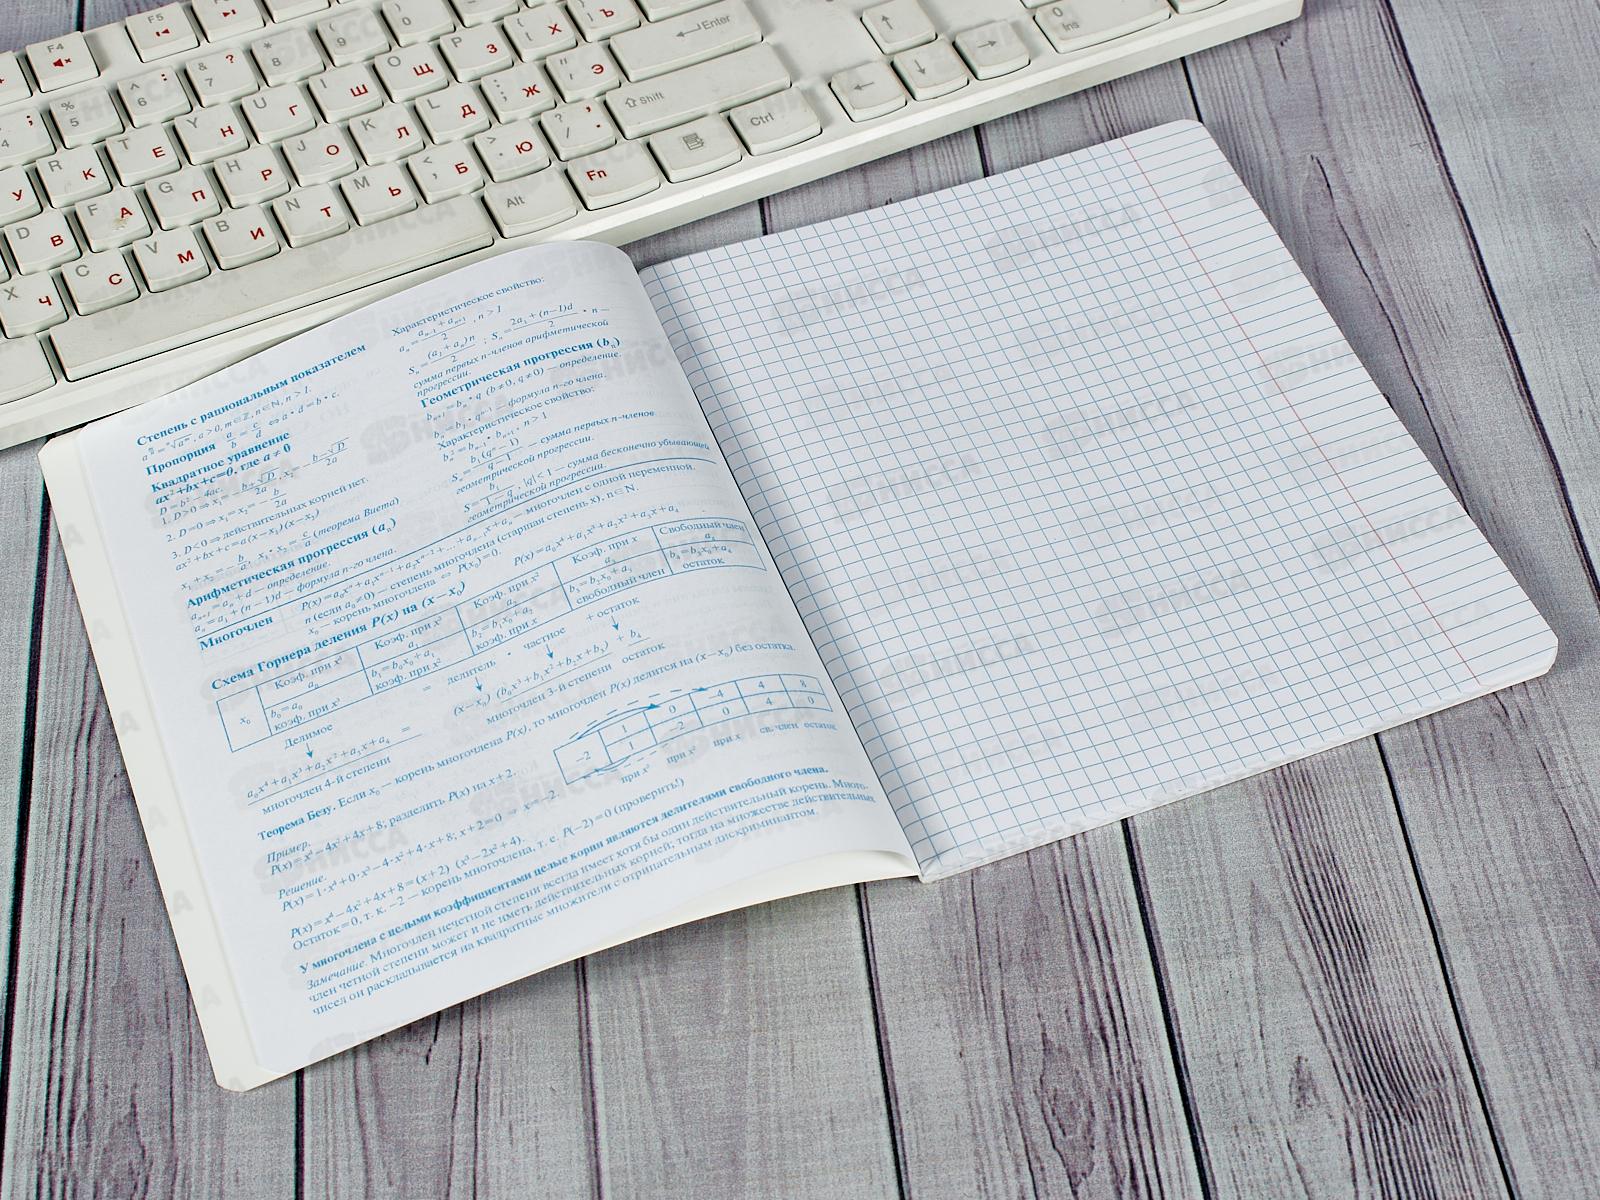 Степень с рациональным показателем
a^(m/n) = ⁿ√aᵐ, a > 0, m∈ℤ, n∈ℕ, n > 1.
Пропорция a/b = c/d ⇔ a • d = b • c.
Квадратное уравнение
ax² + bx + c = 0, где a ≠ 0
D = b² − 4ac.
1. D > 0 ⇒ x₁ = −b + √D / 2a, x₂ = −b − √D / 2a
2. D = 0 ⇒ x₁ = x₂ = − b/2a
3. D < 0 ⇒ действительных корней нет.
ax² + bx + c = a (x − x₁) (x − x₂)
x₁ + x₂ = − b/a, x₁ • x₂ = c/a (теорема Виета)
Арифметическая прогрессия (aₙ)
aₙ₊₁ = aₙ + d — определение.
aₙ = a₁ + (n − 1)d — формула n-го члена.
Характеристическое свойство:
aₙ = aₙ₋₁ + aₙ₊₁ / 2, n > 1
Sₙ = (a₁ + aₙ)n / 2 ; Sₙ = 2a₁ + (n−1)d / 2 • n —
сумма первых n-членов арифметической
прогрессии.
Геометрическая прогрессия (bₙ)
bₙ₊₁ = bₙ • q (b ≠ 0, q ≠ 0) — определение.
bₙ = b₁ • qⁿ⁻¹ — формула n-го члена.
Характеристическое свойство:
bₙ² = bₙ₋₁ • bₙ₊₁, n > 1
Sₙ = b₁(qⁿ − 1) / q − 1 — сумма первых n-членов
геометрической прогрессии.
S = b₁ / 1 − q, |q| < 1 — сумма бесконечно убывающей
геометрической прогрессии.
Многочлен P(x) = a₀xⁿ + a₁xⁿ⁻¹ + a₂xⁿ⁻² + ... + aₙ₋₁x + aₙ — многочлен с одной переменной.
n (если a₀ ≠ 0) — степень многочлена (старшая степень x), n∈N.
x₀ — корень многочлена ⇔ P(x₀) = 0.
Схема Горнера деления P(x) на (x − x₀) P(x) = a₀x⁴ + a₁x³ + a₂x² + a₃x + a₄
Коэф. при x⁴ Коэф. при x³ Коэф. при x² Коэф. при x Свободный член
a₀ a₁ a₂ a₃ a₄
x₀ b₀ = a₀ b₁ = b₀x₀ + a₁ b₂ = b₁x₀ + a₂ b₃ = b₂x₀ + a₃ b₄ = b₃x₀ + a₄
коэф. при x³ коэф. при x² коэф. при x свободный член остаток
Делимое = делитель • частное + остаток
a₀x⁴ + a₁x³ + a₂x² + a₃x + a₄ = (x − x₀) (b₀x³ + b₁x² + b₂x + b₃) + b₄
многочлен 4-й степени многочлен 3-й степени остаток
Теорема Безу. Если x₀ — корень многочлена P(x), то многочлен P(x) делится на (x − x₀) без остатка.
Пример.
P(x) = x⁴ − 4x² + 4x + 8; разделить P(x) на x + 2.
Решение.
P(x) = 1 • x⁴ + 0 • x³ − 4 • x² + 4 • x + 8; x + 2 = 0 ⇒ x = −2.
1 0 −4 4 8
−2 1 −2 0 4 0
при x³ при x² при x св. член остаток
P(x) = x⁴ − 4x² + 4x + 8 = (x + 2) (x³ − 2x² + 4).
Остаток = 0, т. к. −2 — корень многочлена, т. е. P(−2) = 0 (проверить!)
У многочлена с целыми коэффициентами целые корни являются делителями свободного члена.
Замечание. Многочлен нечетной степени всегда имеет хотя бы один действительный корень. Много-
член четной степени может и не иметь действительных корней, тогда на множестве действительных
чисел он раскладывается на квадратные множители с отрицательным дискриминантом.
F4
F5
Enter
Shift
Ctrl
Fn
Alt
Ins
НИССА